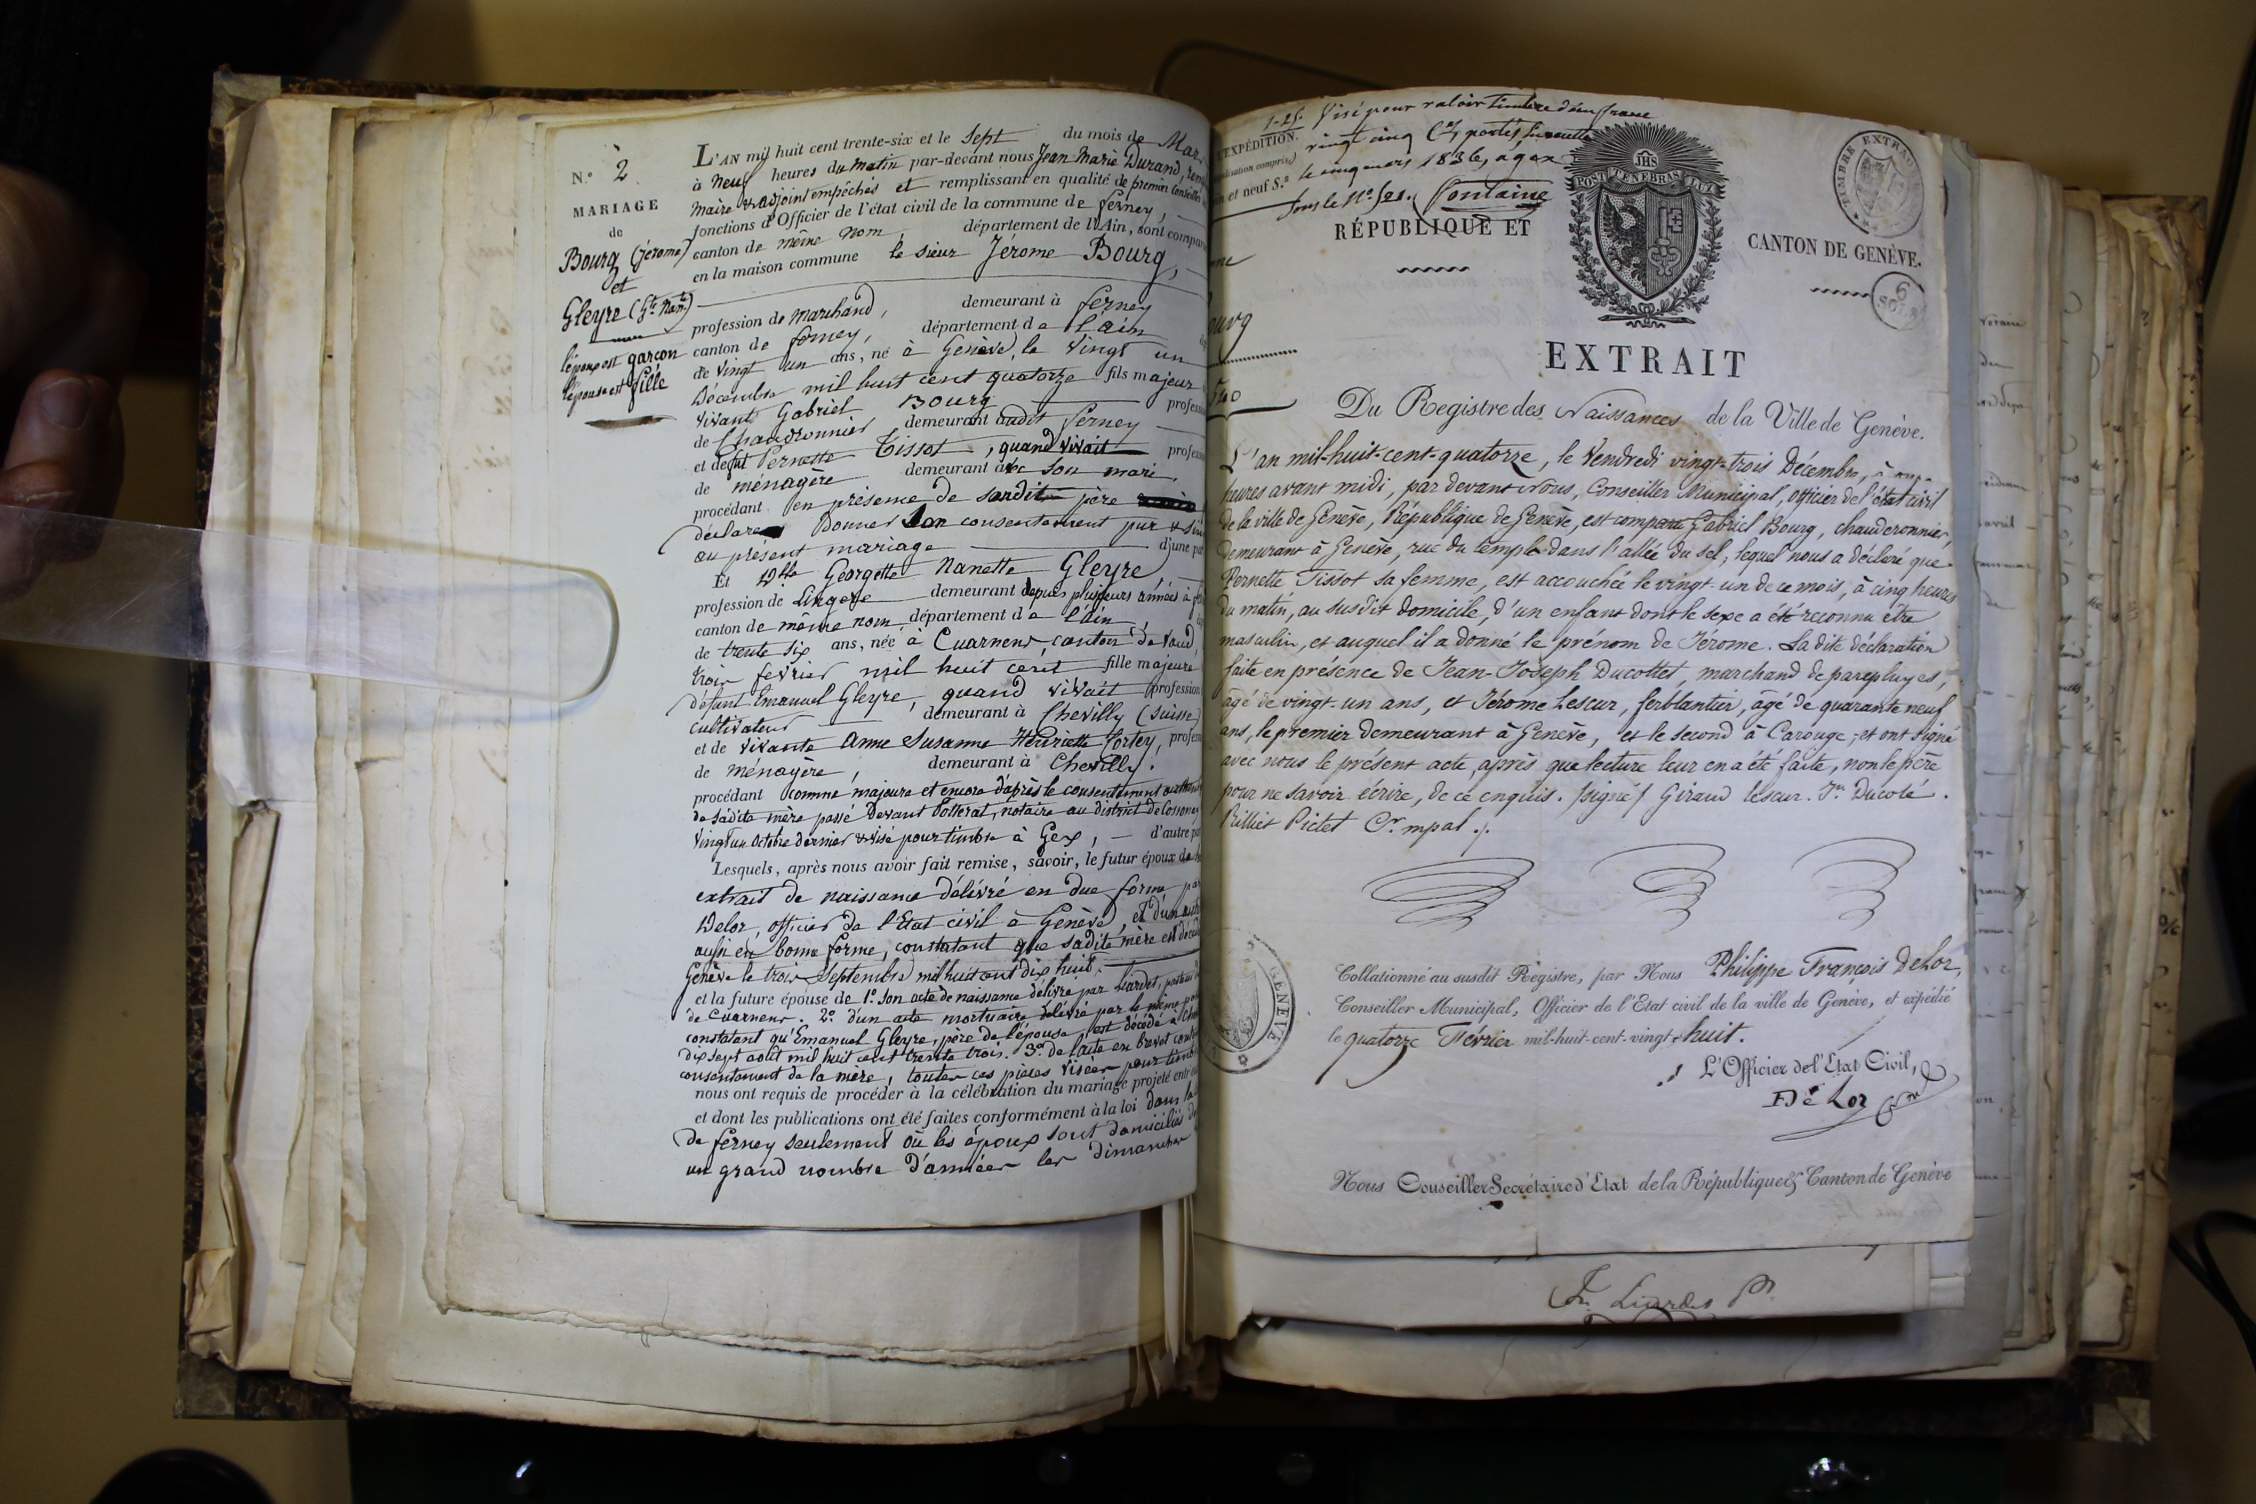 N.º 2
MARIAGE
de
Bourg (Jérome)
et
Gleyre (Gte Nante)
l'époux est garçon
l'épouse est fille
L'AN mil huit cent trente-six et le Sept du mois de Mar
à neuf heures du matin par-devant nous Jean Marie Durand,
Maire & adjoint empêchés et remplissant en qualité de premier Conseiller
fonctions d'Officier de l'état civil de la commune de ferney,
canton de même nom, département de l'Ain, sont compar
en la maison commune le sieur Jérome Bourg,
profession de marchand, demeurant à ferney
canton de ferney, département de l'ain
de vingt un ans, né à Genève, le vingt un
Décembre mil huit cent quatorze fils majeur
vivant Gabriel Bourg profess
de Chaudronnier demeurant audit ferney
et de fut Pernette Tissot, quand vivait profess
de ménagère demeurant avec son mari
procédant en présence de sondit père
déclare donner son consentement pur &
au présent mariage d'une pa
Et Dlle Georgette Nanette Gleyre
profession de Lingere demeurant depuis plusieurs années à
canton de même nom, département de l'ain
de trente six ans, née à Cuarnens, canton de Vaud,
trois fevrier mil huit cent fille majeure
défunt Emanuel Gleyre, quand vivait profession
cultivateur demeurant à Chevilly (Suisse)
et de vivante Anne Susanne Henriette Tortey, profess
de ménagère, demeurant à Chevilly.
procédant comme majeure et encore d'après le consentement
de sadite mère passé devant Potterat, notaire au district de Cossonay
vingt un Octobre dernier & visé pour timbre à Gex, d'autre pa
Lesquels, après nous avoir fait remise, savoir, le futur époux de
extrait de naissance délivré en due forme par
Delor, officier de l'Etat civil à Genève, et d'un autre
aussi en bonne forme, constatant que sadite mère est
Genève le trois Septembre mil huit cent dix huit.
et la future épouse de 1.º son acte de naissance délivré par Liardet,
de Cuarnens. 2.º d'un acte mortuaire délivré par le même
constatant qu'Emanuel Gleyre, père de l'épouse, est décédé à
dix sept août mil huit cent trente trois. 3.º de l'acte en brevet
consentement de la mère, toutes ces pièces visées pour timbre
nous ont requis de procéder à la célébration du mariage projeté entre
et dont les publications ont été faites conformément à la loi dans la
de ferney seulement où les époux sont domiciliés
un grand nombre d'années les dimanches
1-25. Visé pour valoir timbre d'un franc
EXPÉDITION. vingt cinq Ces portés
le cinq mars 1836, à gex
et neuf S.s
Sous le No. Fontaine
POST TENEBRAS LUX
JHS
TIMBRE EXTRAO
RÉPUBLIQUE ET CANTON DE GENÈVE.
6
SOLS
EXTRAIT
Du Registre des Naissances de la Ville de Genève.
L'an mil-huit-cent-quatorze, le Vendredi vingt-trois Décembre, à
heures avant midi, par devant Nous, Conseiller Municipal, officier de l'état civil
de la ville de Genève, République de Genève, est comparu Gabriel Bourg, chauderonnier,
demeurant à Genève, rue du temple dans l'allée du sel, lequel nous a déclaré que
Pernette Tissot sa femme, est accouchée le vingt-un de ce mois, à cinq heures
du matin, au susdit domicile, d'un enfant dont le sexe a été reconnu être
masculin, et auquel il a donné le prénom de Jérome. La dite déclaration
faite en présence de Jean-Joseph Ducottet, marchand de parapluyes,
âgé de vingt-un ans, et Jérome Lescur, ferblantier, âgé de quarante neuf
ans, le premier demeurant à Genève, et le second à Carouge; et ont signé
avec nous le présent acte, après que lecture leur en a été faite, non le père
pour ne savoir écrire, de ce enquis. /signé/ Giraud Lescur. Jn. Ducoté.
Rilliet Pictet Cr. mpal ./.
GENEVE
Collationné au susdit Registre, par Nous Philippe François DeLor,
Conseiller Municipal, Officier de l'Etat civil de la ville de Genève, et expédié
le quatorze Février mil-huit-cent-vingt-huit.
L'Officier de l'Etat Civil,
De Lor
Nous Conseiller Secrétaire d'Etat de la République & Canton de Genève